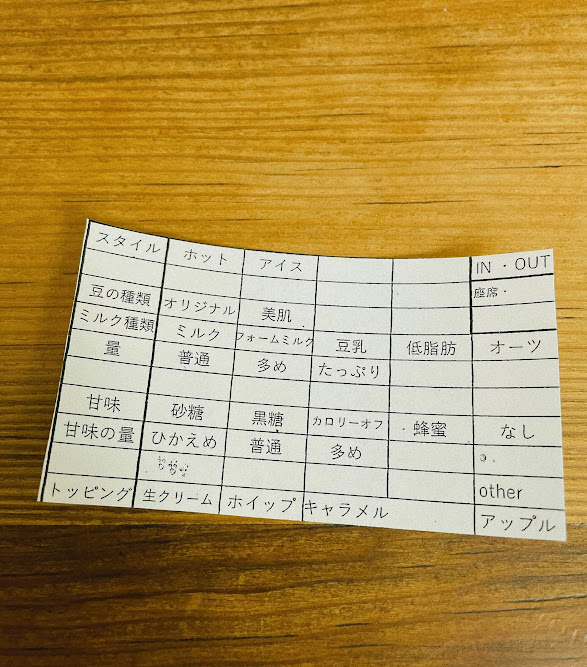 スタイル ホット アイス IN・OUT
座席・
豆の種類 オリジナル 美肌
ミルク種類 ミルク フォームミルク 豆乳 低脂肪 オーツ
量 普通 多め たっぷり
甘味 砂糖 黒糖 カロリーオフ 蜂蜜 なし
甘味の量 ひかえめ 普通 多め
other
トッピング 生クリーム ホイップ キャラメル アップル